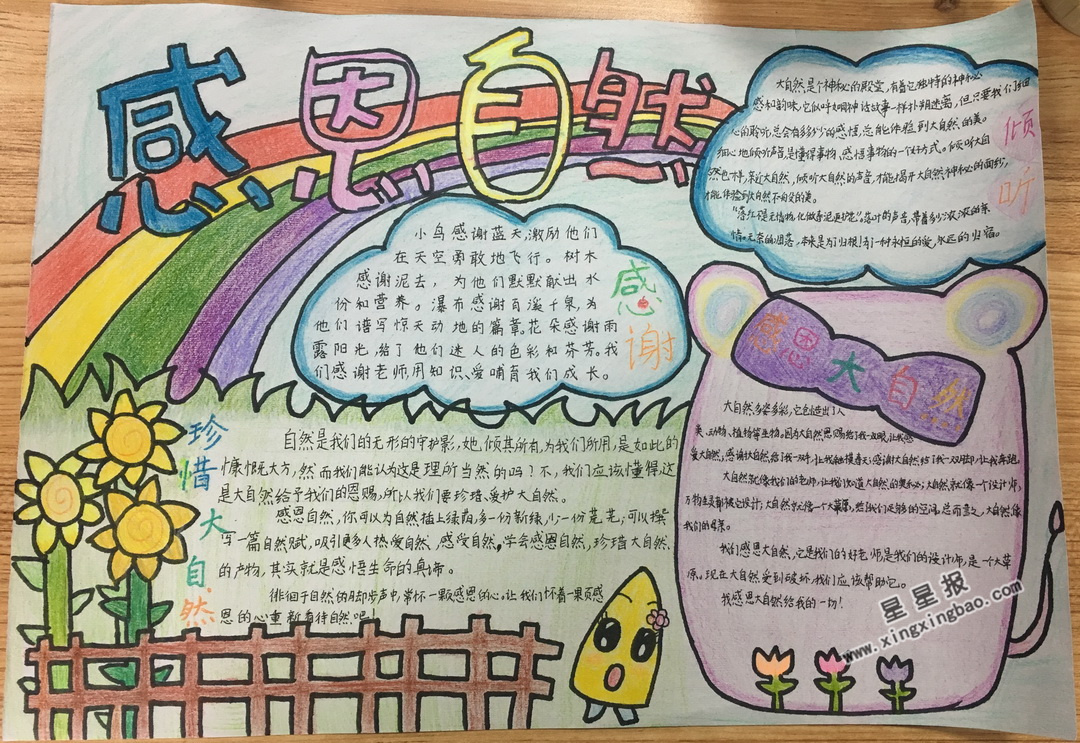 感恩自然
大自然是个神秘的殿堂,有着它独特的神秘
感和韵味,它似乎如神话故事一样扑朔迷离,但只要我们细
心的聆听总会有多多少少的感悟,总能体验到大自然的美。
细心地倾听声音是懂得事物、感悟事物的一个好方式。倾听大自
然也一样,亲近大自然,倾听大自然的声音,才能揭开大自然神秘的面纱,
才能体验到大自然不为人知的美。
倾听
小鸟感谢蓝天,激励他们
在天空勇敢地飞行。树木
感谢泥去,为他们默默献出水
份和营养。瀑布感谢百溪千泉,为
他们谱写惊天动地的篇章。花朵感谢雨
露阳光,给了他们迷人的色彩和芬芳。我
们感谢老师用知识、爱哺育我们成长。
感谢
感恩大自然
大自然多姿多彩,它创造出了人
类、动物、植物等生物。因为大自然恩赐给了我一双眼,让我感
受大自然,感谢大自然给了我一双手,让我触摸春天;感谢大自然给了我一双脚,让我奔跑。
大自然就像我们的老师,让我们知道大自然的奥秘;大自然就像一个设计师,
万物生灵都被它设计;大自然就像一个大草原,给我们足够的空间。总而言之,大自然,像
我们的母亲。
我们感恩大自然,它是我们的好老师是我们的设计师,是一个大草
原。现在大自然受到破坏,我们应该帮助它。
我感恩大自然给我的一切!
珍惜大自然
自然是我们的无形的守护影,她,倾其所有,为我们所用,是如此的
慷慨大方,然而我们能认为这是理所当然的吗?不,我们应该懂得这
是大自然给予我们的恩赐,所以我们要珍惜、爱护大自然。
感恩自然,你可以为自然插上绿荫,多一份新绿,少一份荒芜;可以撰
写一篇自然赋,吸引更多人热爱自然、感受自然,学会感恩自然,珍惜大自然
的产物,其实就是感悟生命的真谛。
徘徊于自然的脚步声中,常怀一颗感恩的心,让我们怀着一颗感
恩的心重新看待自然吧!
星星报
www.xingxingbao.com